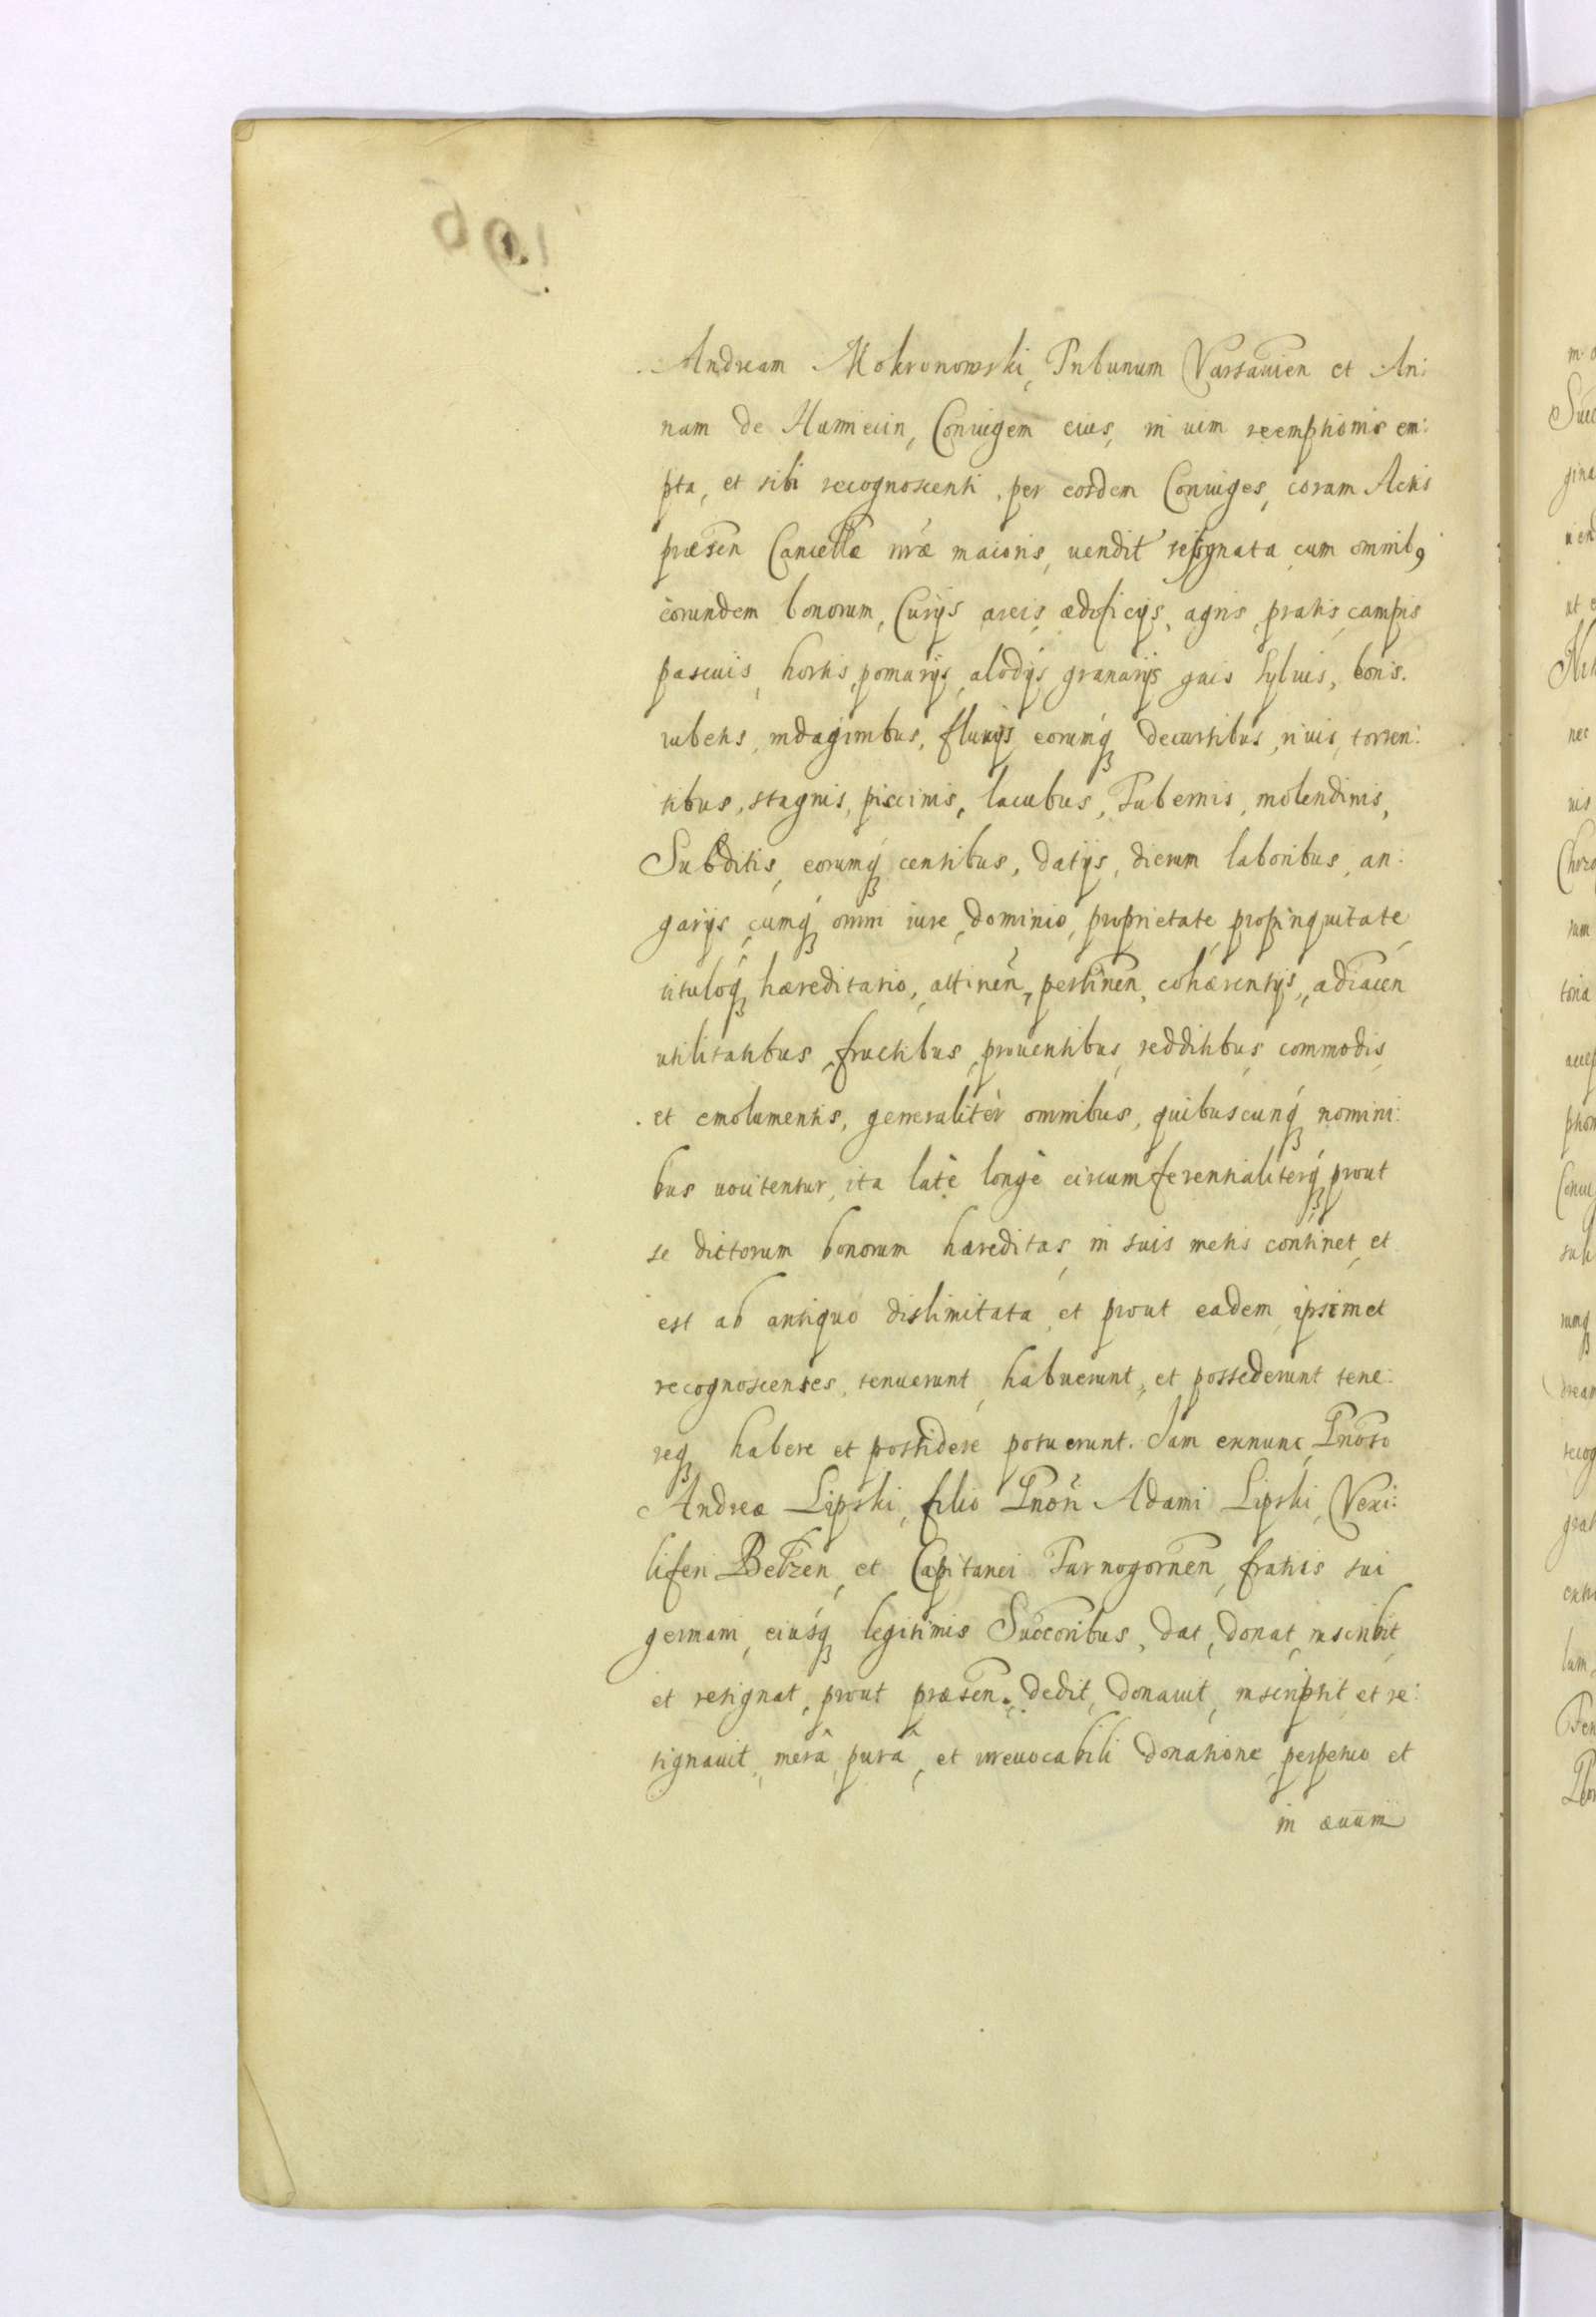 Andream Mokronowski, Tribunum Varsauien et An:
nam de Humiecin, Coniugem eius, in uim reemptionis em:
pta, et sibi recognoscenti, per eosdem Coniuges, coram Actis
præsen Cancellæ nræ maioris, vendit resignata cum omnibꝰ
eorundem bonorum, Curijs areis ædificijs, agris, pratis, campis
pascuis, hortis, pomarijs, alodijs granarijs gais Syluis, boris.
rubetis, indaginibus, fluuijs eorumq́ decursibus, riuis, torren:
tibus, stagnis, piscinis, lacubus, Tabernis, molendinis,
Subditis, eorumq́ censibus, datijs, dierum laboribus, an:
garijs, cumq́ omni iure, dominio, proprietate, propinquitate
tituloq́ hæreditario, attinen, pertinen, cohærentijs, adiacen
utilitatibus, fructibus, prouentibus, redditibus, commodis,
et emolumentis, generalitèr omnibus, quibuscunq́ nomini:
bus uocitentur, ita latè longè circumferentialiterq́ prout
se dictorum bonorum hæreditas, in suis metis continet, et
est ab antiquo dislimitata, et prout eadem, ipsimet
recognoscentes, tenuerunt, habuerunt, et possederunt tene:
req habere et possidere potuerunt. Iam exnunc Gnoso
Andreæ Lipski, filio Gnosi Adami Lipski, Vexi:
liferi Betzen, et Capitanei Tarnogornen, fratris sui
germani, eiusq́ legitimis Succoribus, dat, donat, inscribit,
et resignat, prout præsen. dedit, donauit, inscripsit, et re:
signauit, merâ, purâ, et irreuocabili donatione, perpetuo et
in æuum